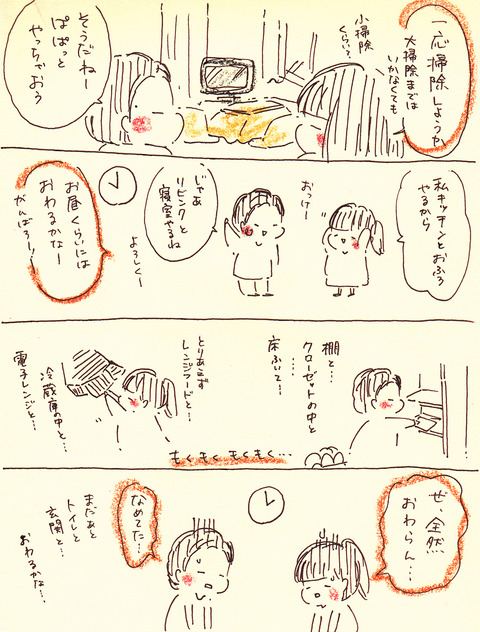 一応掃除しようか
大掃除までは
いかなくても
小掃除
くらい？
そうだねー
ぱぱっと
やっちゃおう
私キッチンとおふろ
やるから
おっけー
じゃあ
リビングと
寝室やるね
よろしくー
お昼くらいには
おわるかなー
がんばろー！
棚と…
クローゼットの中と
……
床ふいて…
とりあえず
レンジフードと…
冷蔵庫の中と…
電子レンジと…
もくもくもくもく…
ぜ、全然
おわらん…
なめてた…
まだあと
トイレと
玄関と…
おわるかな…